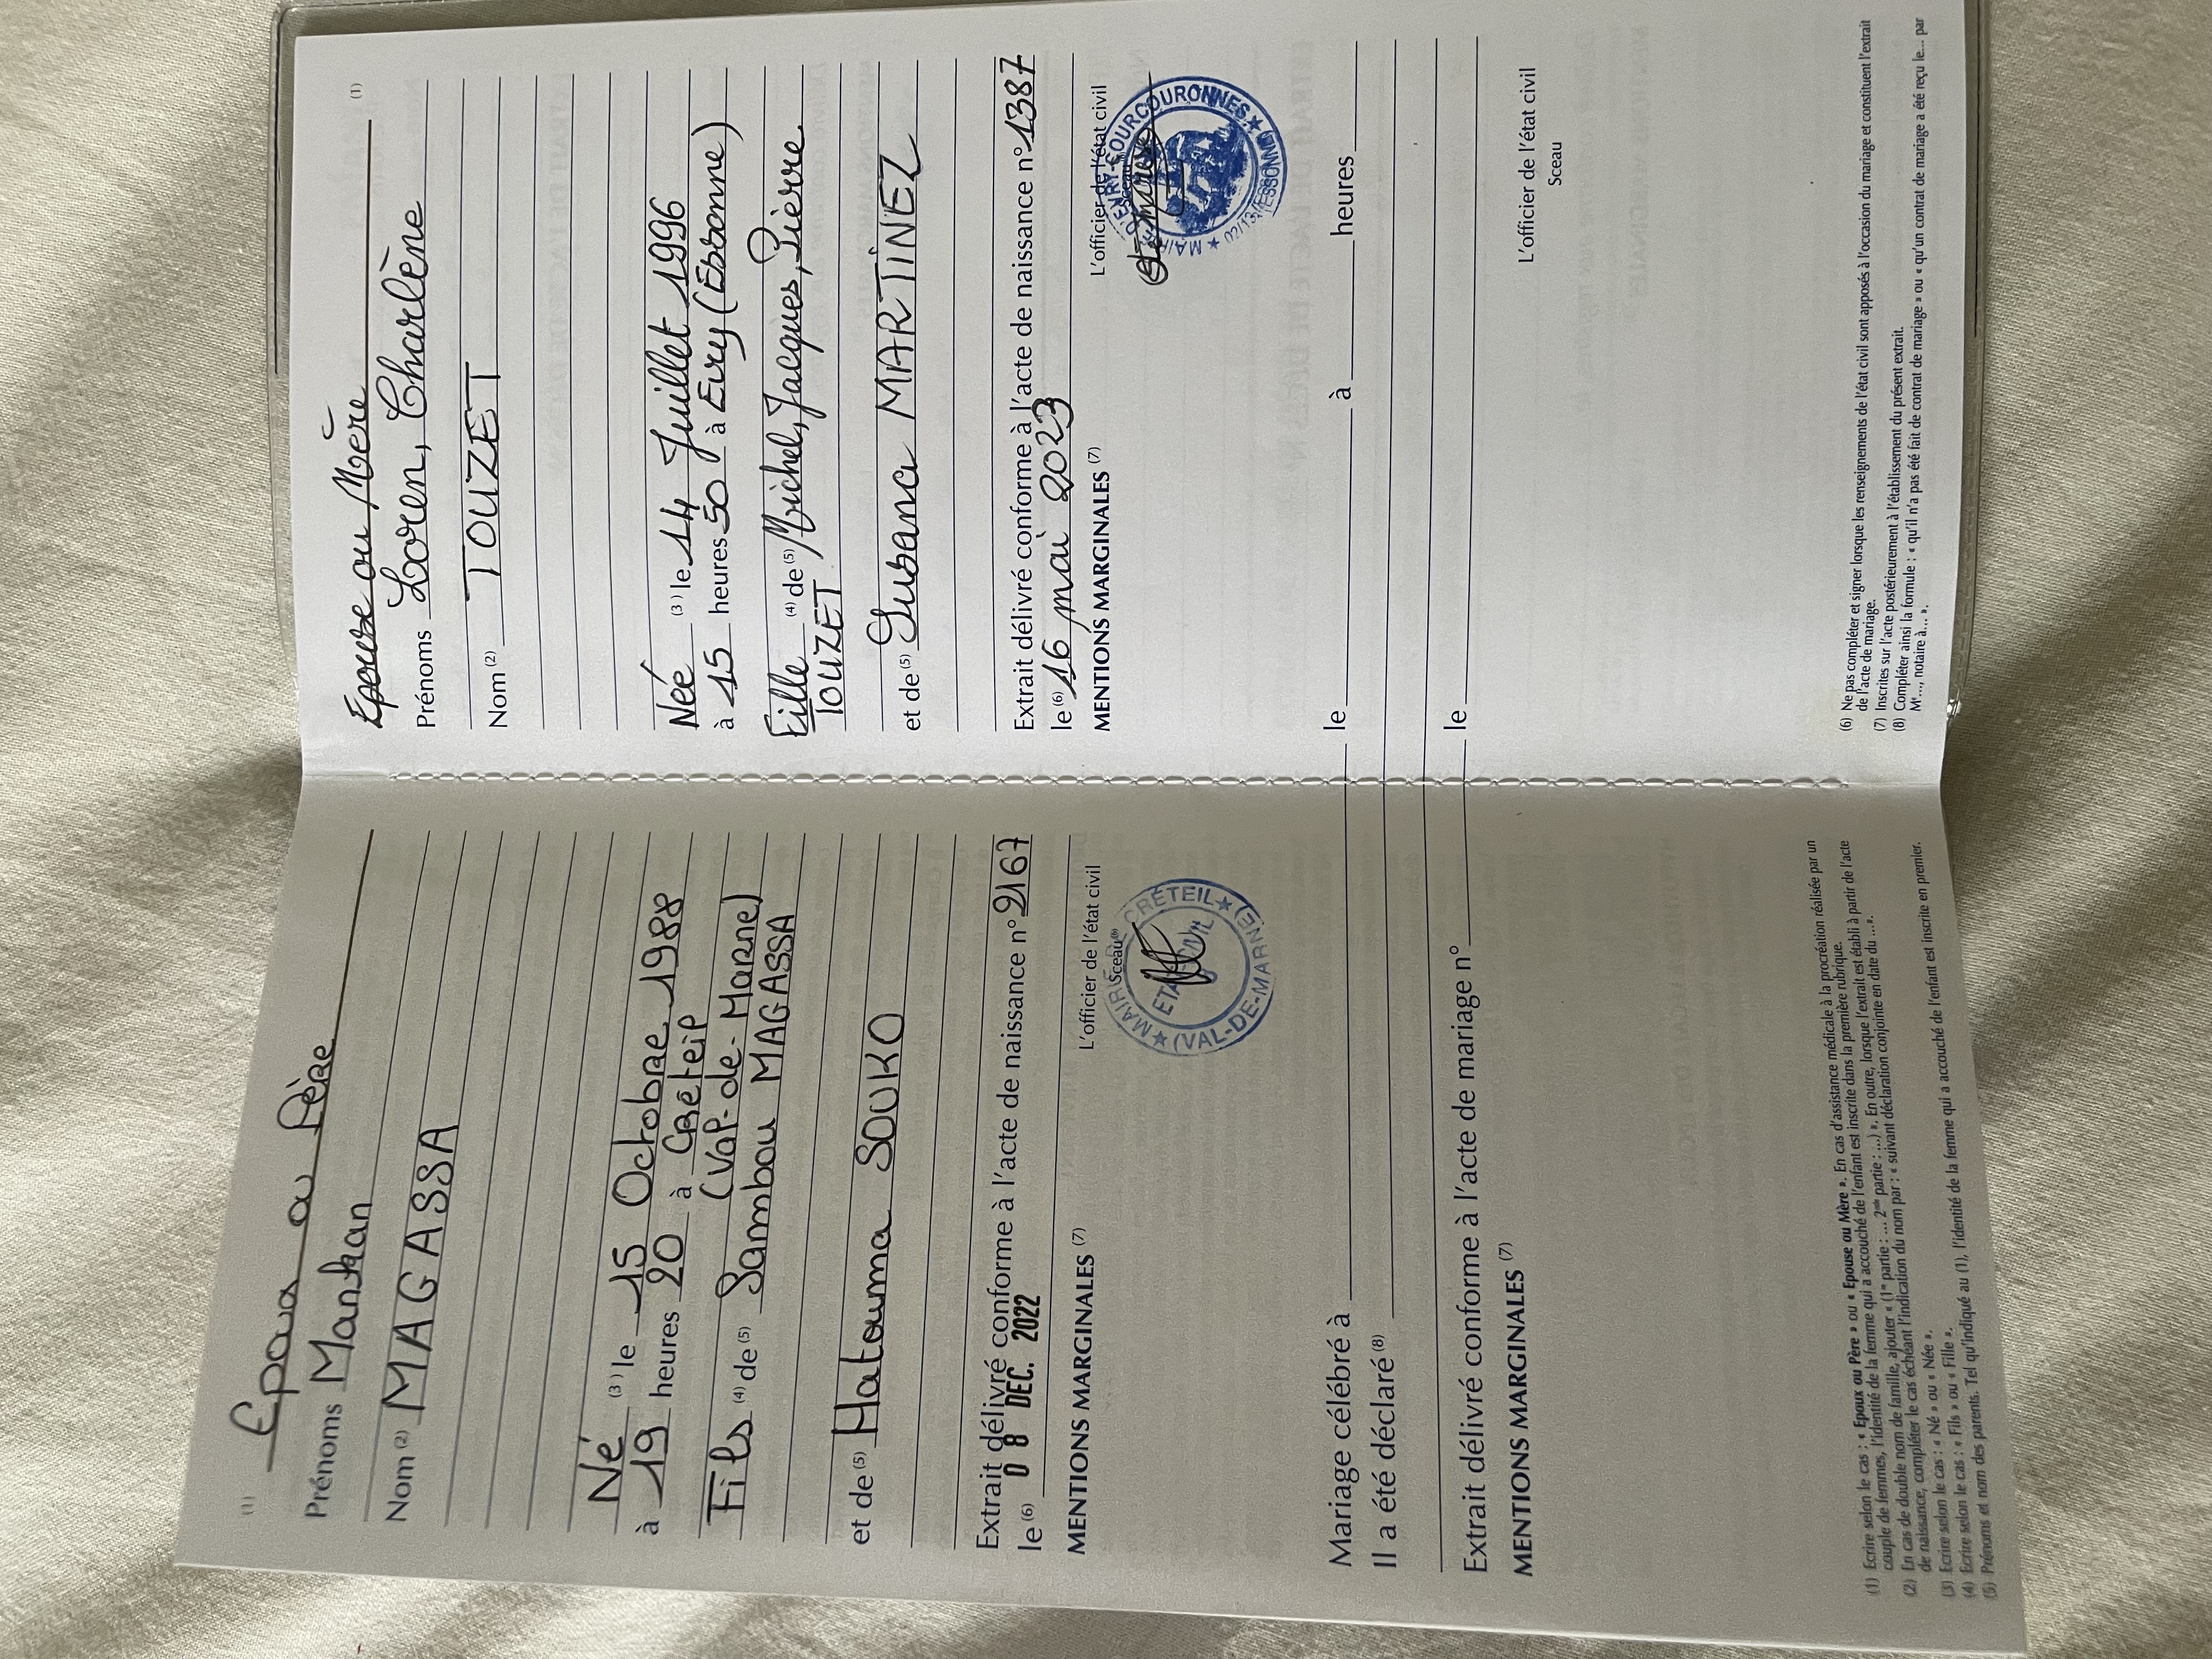 (1)
Epoux ou Père
Prénoms Mankan
Nom (2) MAGASSA
Né (3) le 15 Octobre 1988
à 19 heures 20 à Créteil
(Val-de-Marne)
Fils (4) de (5) Sambou MAGASSA
et de (5) Hatouma SOUKO
Extrait délivré conforme à l'acte de naissance n° 2167
le (6) 08 DEC. 2022
MENTIONS MARGINALES (7)
L'officier de l'état civil
Sceau
MAIRIE DE CRÉTEIL
ETAT CIVIL
(VAL-DE-MARNE)
Epouse ou Mère (1)
Prénoms Loren, Charlène
Nom (2) TOUZET
Née (3) le 14 Juillet 1996
à 15 heures 50 à Evry (Essonne)
Fille (4) de (5) Michel, Jacques, Pierre
TOUZET
et de (5) Susana MARTINEZ
Extrait délivré conforme à l'acte de naissance n° 1387
le (6) 16 mai 2023
MENTIONS MARGINALES (7)
L'officier de l'état civil
Sceau
MAIRIE D'EVRY-COURCOURONNES
(ESSONNE)
Mariage célébré à le à heures
Il a été déclaré (8)
Extrait délivré conforme à l'acte de mariage n° le
MENTIONS MARGINALES (7)
L'officier de l'état civil
Sceau
(1) Ecrire selon le cas : « Epoux ou Père » ou « Epouse ou Mère ». En cas d'assistance médicale à la procréation réalisée par un
couple de femmes, l'identité de la femme qui a accouché de l'enfant est inscrite dans la première rubrique.
(2) En cas de double nom de famille, ajouter « (1re partie : ... 2nde partie : ...) ». En outre, lorsque l'extrait est établi à partir de l'acte
de naissance, compléter le cas échéant l'indication du nom par : « suivant déclaration conjointe en date du ... ».
(3) Ecrire selon le cas : « Né » ou « Née ».
(4) Ecrire selon le cas : « Fils » ou « Fille ».
(5) Prénoms et nom des parents. Tel qu'indiqué au (1), l'identité de la femme qui a accouché de l'enfant est inscrite en premier.
(6) Ne pas compléter et signer lorsque les renseignements de l'état civil sont apposés à l'occasion du mariage et constituent l'extrait
de l'acte de mariage.
(7) Inscrites sur l'acte postérieurement à l'établissement du présent extrait.
(8) Compléter ainsi la formule : « qu'il n'a pas été fait de contrat de mariage » ou « qu'un contrat de mariage a été reçu le... par
Me..., notaire à... ».